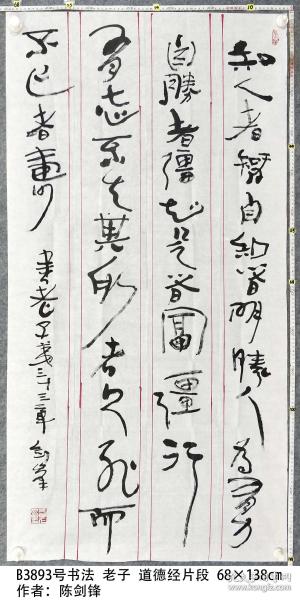 知人者智自知者明勝人者有力
自勝者彊知足者富彊行
有志不失其所者久死而
不亡者壽 書老子第三十三章 劍鋒
B3893号书法 老子 道德经片段 68×138cm
作者：陈剑锋